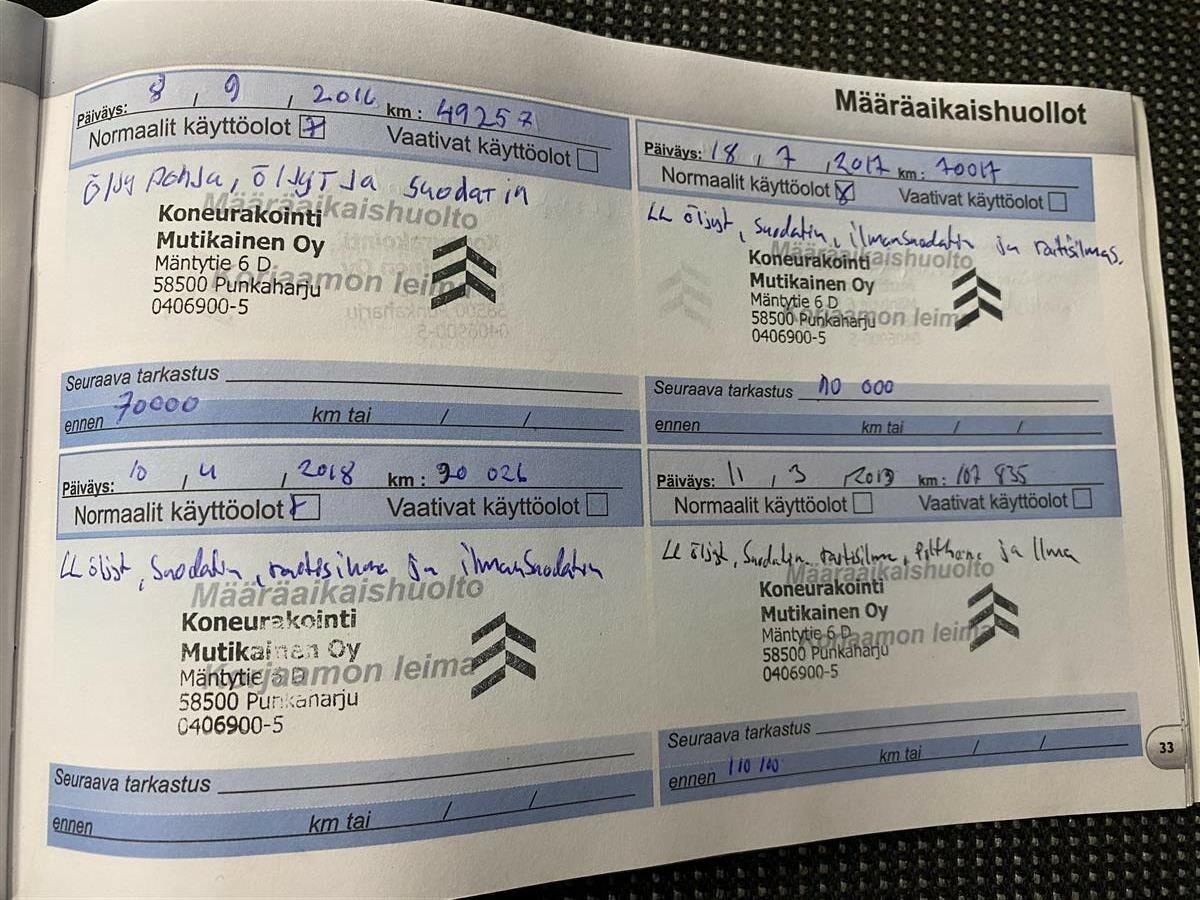 Määräaikaishuollot
Päiväys: 8 , 9 , 2016 km: 49257
Normaalit käyttöolot Vaativat käyttöolot
öljy pohja, öljyt ja suodatin
Määräaikaishuolto
Koneurakointi
Mutikainen Oy
Mäntytie 6 D
Korjaamon leima
58500 Punkaharju
0406900-5
Seuraava tarkastus
ennen 70000 km tai / /
Päiväys: 18 , 7 , 2017 km: 70017
Normaalit käyttöolot Vaativat käyttöolot
LL öljyt, suodatin, ilmansuodatin ja raitisilmas.
Määräaikaishuolto
Koneurakointi
Mutikainen Oy
Mäntytie 6 D
Korjaamon leima
58500 Punkaharju
0406900-5
Seuraava tarkastus 000
ennen km tai / /
Päiväys: 10 , 4 , 2018 km: 90 026
Normaalit käyttöolot Vaativat käyttöolot
LL öljyt, suodatin, raitisilma ja ilmansuodatin
Määräaikaishuolto
Koneurakointi
Mutikainen Oy
Korjaamon leima
Mäntytie 6 D
58500 Punkaharju
0406900-5
Seuraava tarkastus
ennen km tai / /
Päiväys: 11 , 3 , 2019 km: 107 835
Normaalit käyttöolot Vaativat käyttöolot
LL öljyt, suodatin, raitisilma, ja Ilma
Määräaikaishuolto
Koneurakointi
Mutikainen Oy
Mäntytie 6 D
Korjaamon leima
58500 Punkaharju
0406900-5
Seuraava tarkastus
ennen 110 100 km tai / /
33